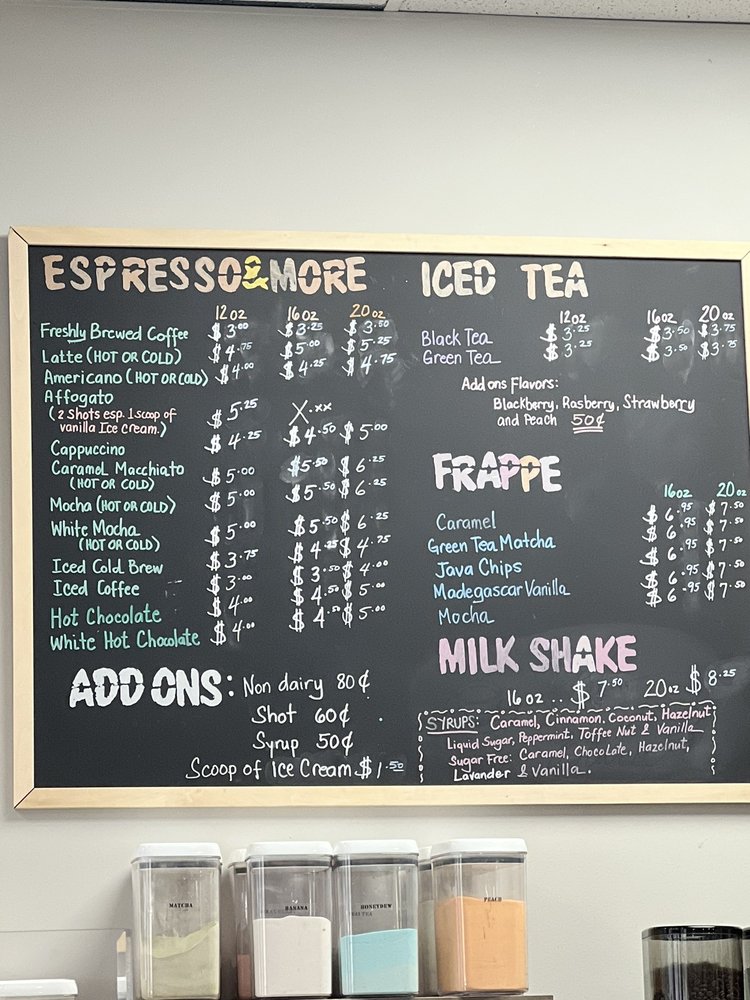 ESPRESSO&MORE
12 oz 16 oz 20 oz
Freshly Brewed Coffee $3.00 $3.25 $3.50
Latte (HOT OR COLD) $4.75 $5.00 $5.25
Americano (HOT OR COLD) $4.00 $4.25 $4.75
Affogato
(2 Shots esp. 1 scoop of
vanilla Ice cream.) $5.25 X.xx
Cappuccino $4.25 $4.50 $5.00
Caramel Macchiato
(HOT OR COLD) $5.00 $5.50 $6.25
Mocha (HOT OR COLD) $5.00 $5.50 $6.25
White Mocha
(HOT OR COLD) $5.00 $5.50 $6.25
Iced Cold Brew $3.75 $4.25 $4.75
Iced Coffee $3.00 $3.50 $4.00
Hot Chocolate $4.00 $4.50 $5.00
White Hot Chocolate $4.00 $4.50 $5.00
ADD ONS: Non dairy 80¢
Shot 60¢
Syrup 50¢
Scoop of Ice Cream $1.50
ICED TEA
12oz 16oz 20 oz
Black Tea $3.25 $3.50 $3.75
Green Tea $3.25 $3.50 $3.75
Add ons Flavors:
Blackberry, Rasberry, Strawberry
and Peach 50¢
FRAPPE
16oz 20oz
Caramel $6.95 $7.50
Green Tea Matcha $6.95 $7.50
Java Chips $6.95 $7.50
Madegascar Vanilla $6.95 $7.50
Mocha $6.95 $7.50
MILK SHAKE
16 oz .. $7.50 20oz $8.25
SYRUPS: Caramel, Cinnamon, Coconut, Hazelnut
Liquid Sugar, Peppermint, Toffee Nut & Vanilla
Sugar Free: Caramel, Chocolate, Hazelnut,
Lavander & Vanilla.
MATCHA
BANANA
HONEYDEW
PEACH